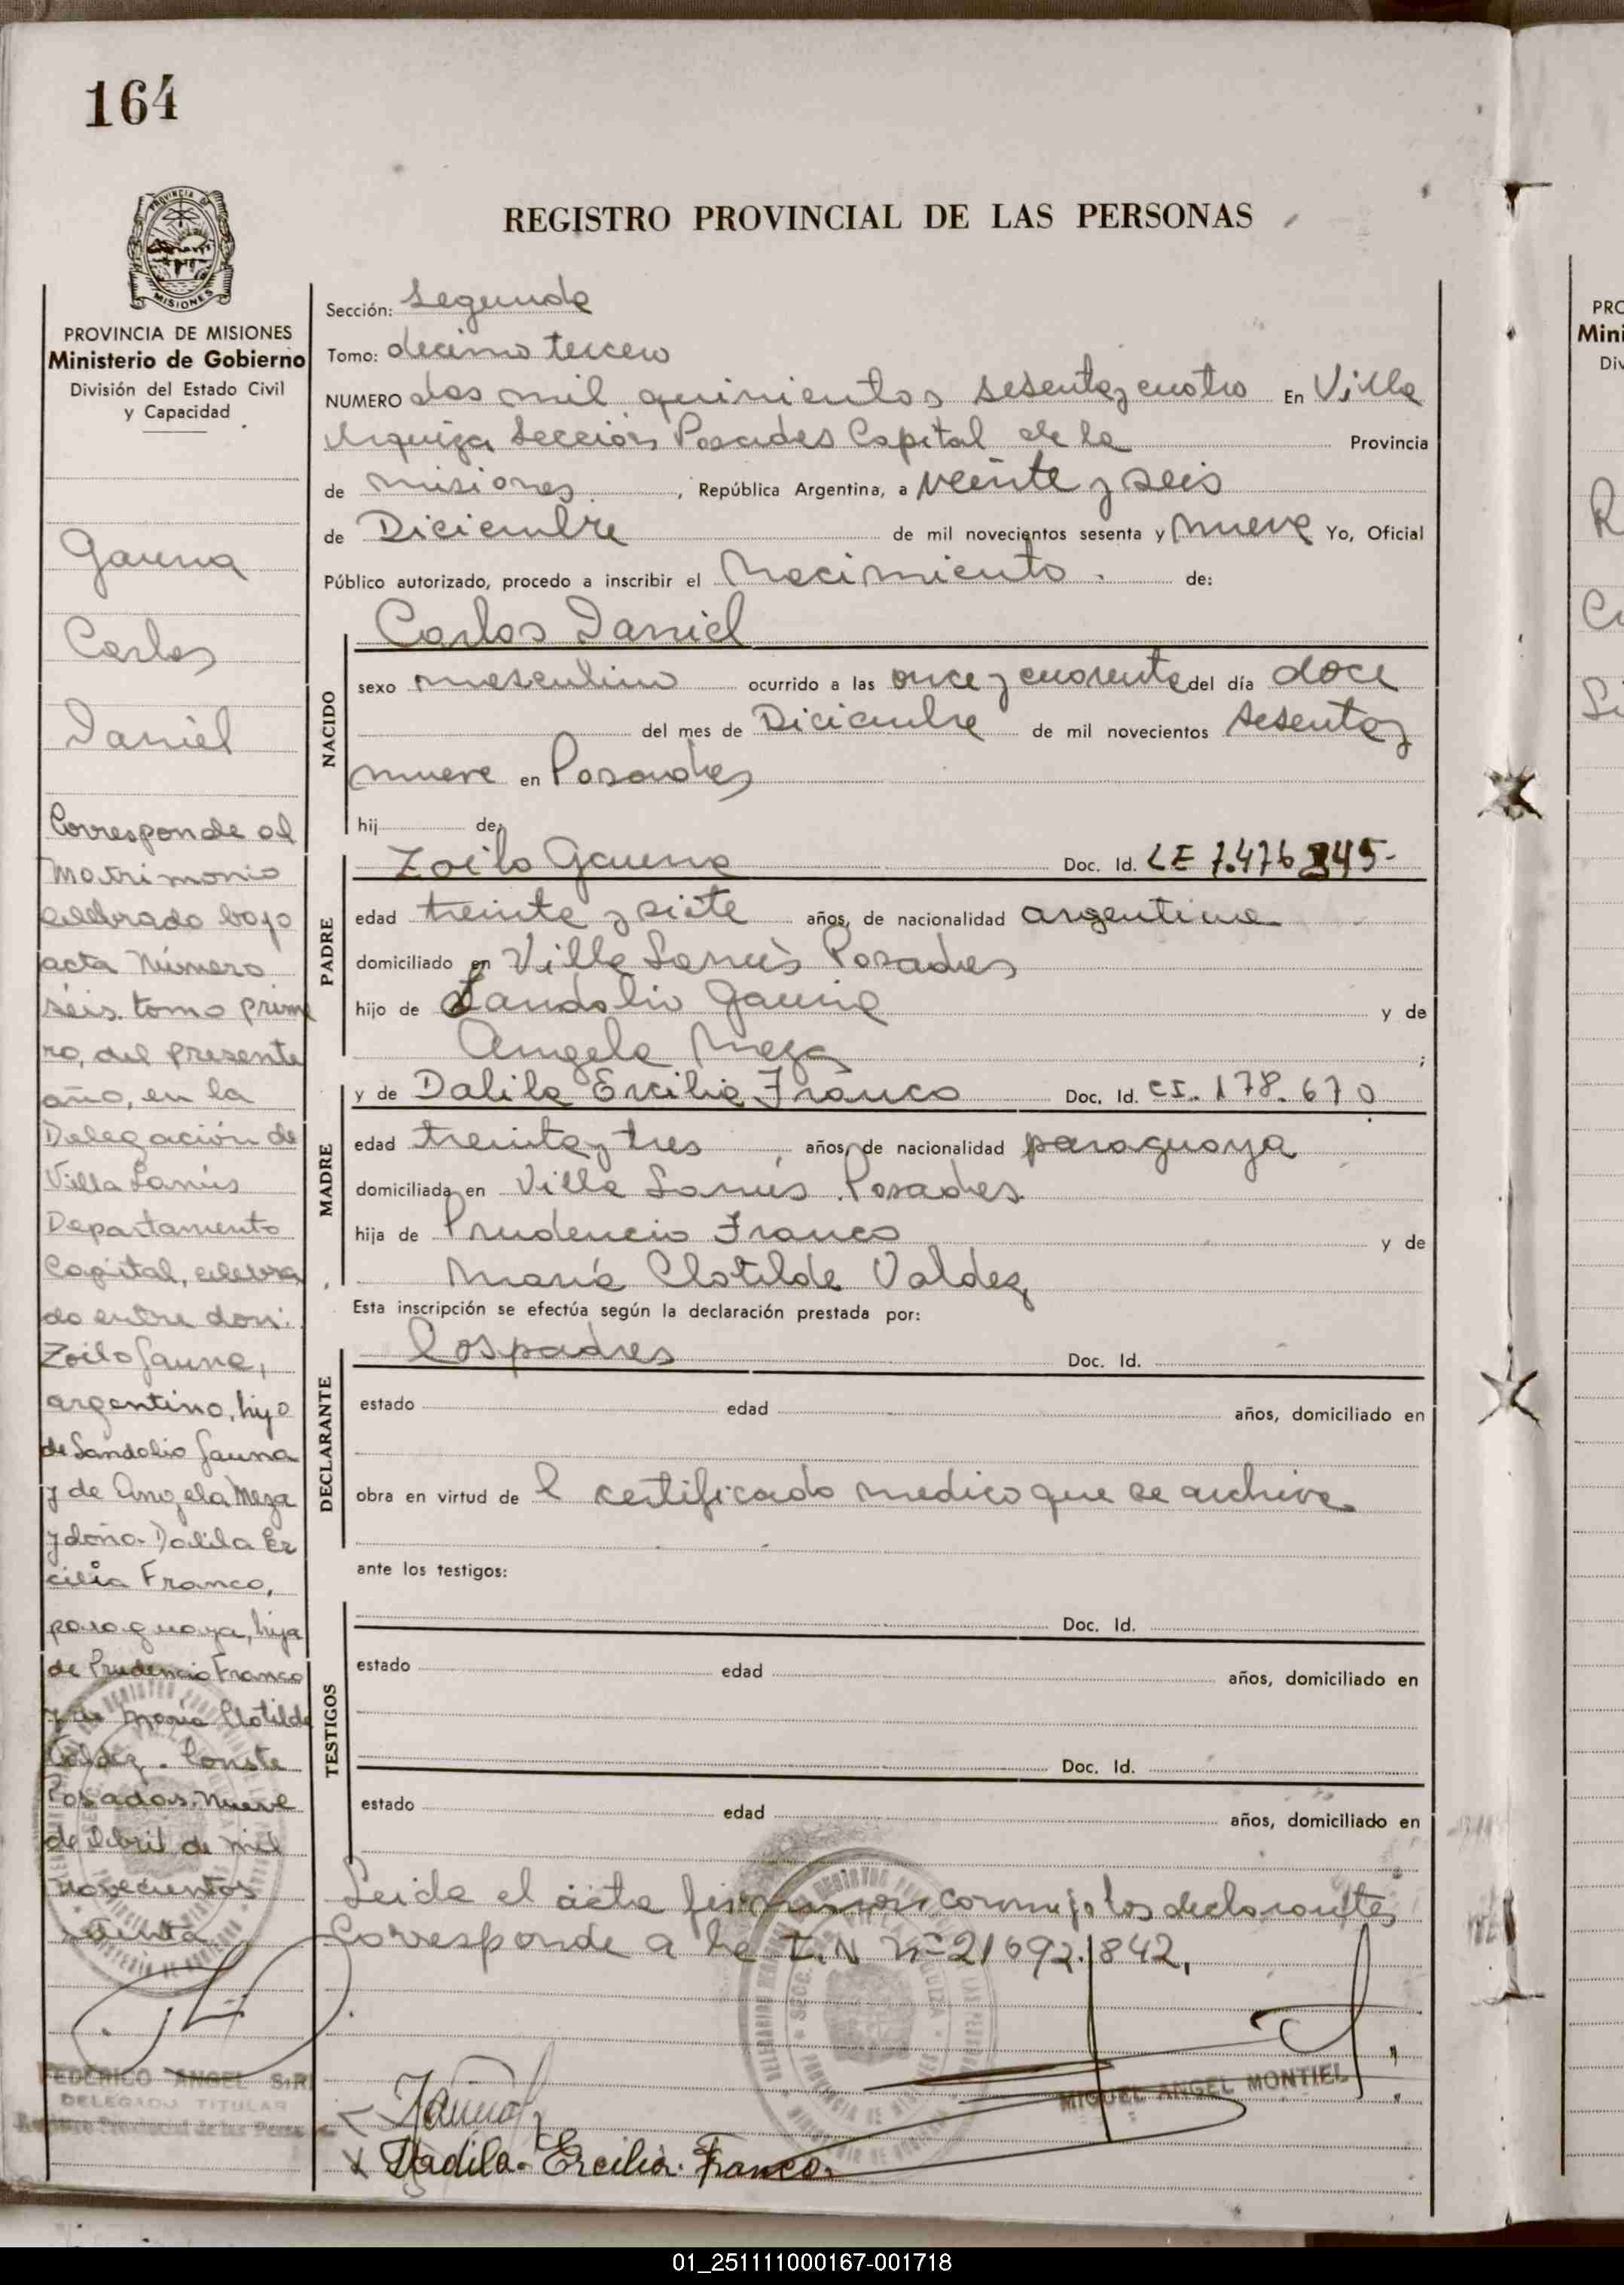 164
REGISTRO PROVINCIAL DE LAS PERSONAS
PROVINCIA DE MISIONES
Ministerio de Gobierno
División del Estado Civil
y Capacidad
Gauna
Carlos
Daniel
Corresponde al
Matrimonio
celebrado bajo
acta Número
séis tomo prime
ro, del presente
año, en la
Delegación de
Villa Lanús
Departamento
Capital, celebra
do entre don:
Zoilo Gauna,
argentino, hijo
de Landolio Gauna
y de Angela Meza
y doña Dalila Er
cilia Franco,
paraguaya, hija
de Prudencio Franco
y de María Clotilde
Valdez. Conste
Posadas. Nueve
de Abril de mil
novecientos
FEDERICO ANGEL SIRI
DELEGADO TITULAR
Registro Provincial de las Personas
Sección: segunda
Tomo: decimo tercero
NUMERO dos mil quinientos sesenta y cuatro En Villa
Urquiza Sección Posadas Capital de la Provincia
de Misiones, República Argentina, a veinte y seis
de Diciembre de mil novecientos sesenta y nueve Yo, Oficial
Público autorizado, procedo a inscribir el Nacimiento. de:
NACIDO
Carlos Daniel
sexo masculino ocurrido a las once y cuarenta del día doce
del mes de Diciembre de mil novecientos sesenta y
nueve en Posadas
hij de:
PADRE
Zoilo Gauna Doc. Id. LE 7.476 345-
edad treinta y siete años, de nacionalidad argentina
domiciliado en Villa Lanús Posadas
hijo de Landolio Gauna y de
Angela Meza ;
MADRE
y de Dalila Ercilia Franco Doc. Id. CI. 178.670
edad treinta y tres años, de nacionalidad paraguaya
domiciliada en Villa Lanús Posadas
hija de Prudencio Franco y de
María Clotilde Valdez
Esta inscripción se efectúa según la declaración prestada por:
DECLARANTE
los padres Doc. Id.
estado edad años, domiciliado en
obra en virtud de l certificado medico que se archiva
ante los testigos:
TESTIGOS
Doc. Id.
estado edad años, domiciliado en
Doc. Id.
estado edad años, domiciliado en
Leida el acta firmaron conmigo los declarantes
Corresponde a la L.N nº 21692.842,
MIGUEL ANGEL MONTIEL
Dadila. Ercilia. Franco.
PRO
Mini
Div
01_251111000167-001718